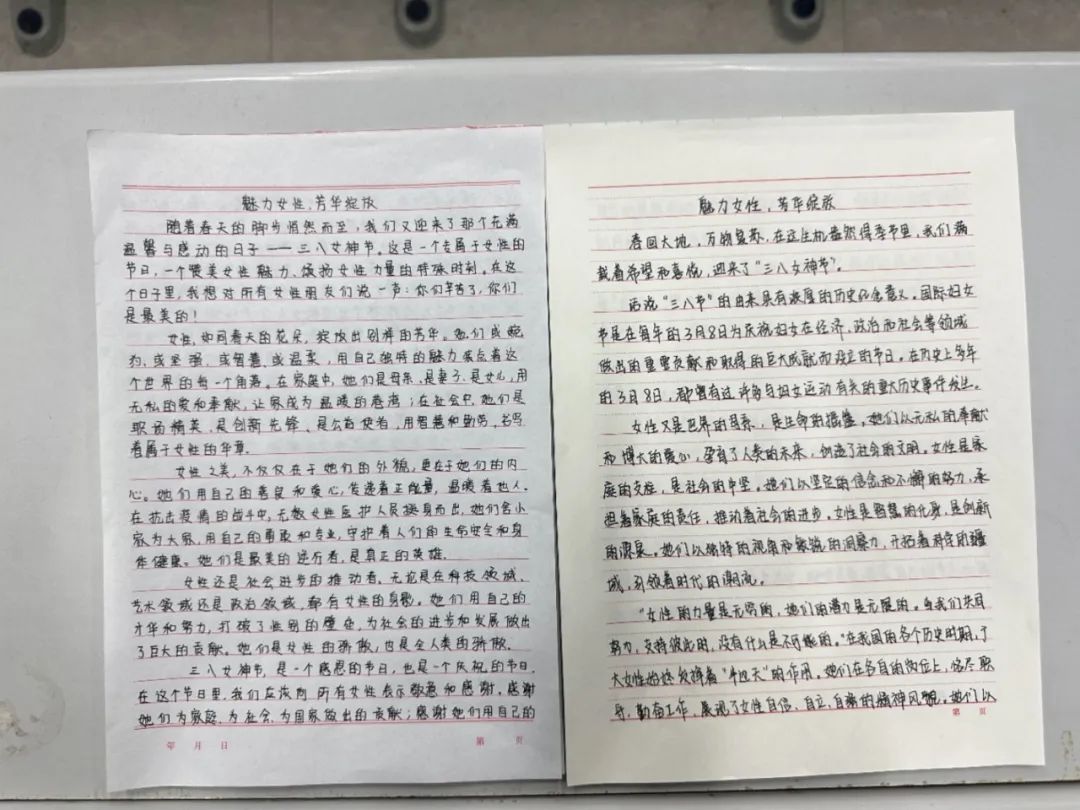 魅力女性,芳华绽放
随着春天的脚步悄然而至,我们又迎来了那个充满
温馨与感动的日子——三八女神节。这是一个专属于女性的
节日,一个赞美女性魅力、颂扬女性力量的特殊时刻。在这
个日子里,我想对所有女性朋友们说一声:你们辛苦了,你们
是最美的!
女性,如同春天的花朵,绽放出别样的芳华。她们或婉
约、或坚强、或智慧、或温柔,用自己独特的魅力装点着这
个世界的每一个角落。在家庭中,她们是母亲、是妻子、是女儿,用
无私的爱和奉献,让家成为温暖的港湾;在社会中,她们是
职场精英、是创新先锋、是公益使者,用智慧和勤劳,书写
着属于女性的华章。
女性之美,不仅仅在于她们的外貌,更在于她们的内
心。她们用自己的善良和爱心,传递着正能量,温暖着他人。
在抗击疫情的战斗中,无数女性医护人员挺身而出,她们舍小
家为大家,用自己的勇敢和专业,守护着人们的生命安全和身
体健康。她们是最美的逆行者,是真正的英雄。
女性还是社会进步的推动者。无论是在科技领域、
艺术领域还是政治领域,都有女性的身影。她们用自己的
才华和努力,打破了性别的壁垒,为社会的进步和发展做出
了巨大的贡献。她们是女性的骄傲,也是全人类的骄傲。
三八女神节,是一个感恩的节日,也是一个庆祝的节日。
在这个节日里,我们应该向所有女性表示敬意和感谢。感谢
她们为家庭、为社会、为国家做出的贡献;感谢她们用自己的
年 月 日 第 页
魅力女性,芳华绽放
春回大地,万物复苏,在这生机盎然得季节里,我们满
载着希望和喜悦,迎来了“三八女神节”。
话说“三八节”的由来具有浓厚的历史纪念意义。国际妇女
节是在每年的3月8日为庆祝妇女在经济、政治和社会等领域
做出的重要贡献和取得的巨大成就而设立的节日。在历史上多年
的3月8日,都曾有过许多与妇女运动有关的重大历史事件发生。
女性又是世界的母亲,是生命的摇篮。她们以无私的奉献
和博大的爱心,孕育了人类的未来,创造了社会的文明。女性是家
庭的支柱,是社会的中坚。她们以坚定的信念和不懈的努力,承
担着家庭的责任,推动着社会的进步。女性是智慧的化身,是创新
的源泉。她们以独特的视角和敏锐的洞察力,开拓着科学的疆
域,引领着时代的潮流。
“女性的力量是无穷的,她们的潜力是无限的。当我们共同
努力,支持彼此时,没有什么是不可能的。”在我国的各个历史时期,广
大女性始终发挥着“半边天”的作用。她们在各自的岗位上,恪尽职
守,勤奋工作,展现了女性自信、自立、自强的精神风貌。她们以
第 页